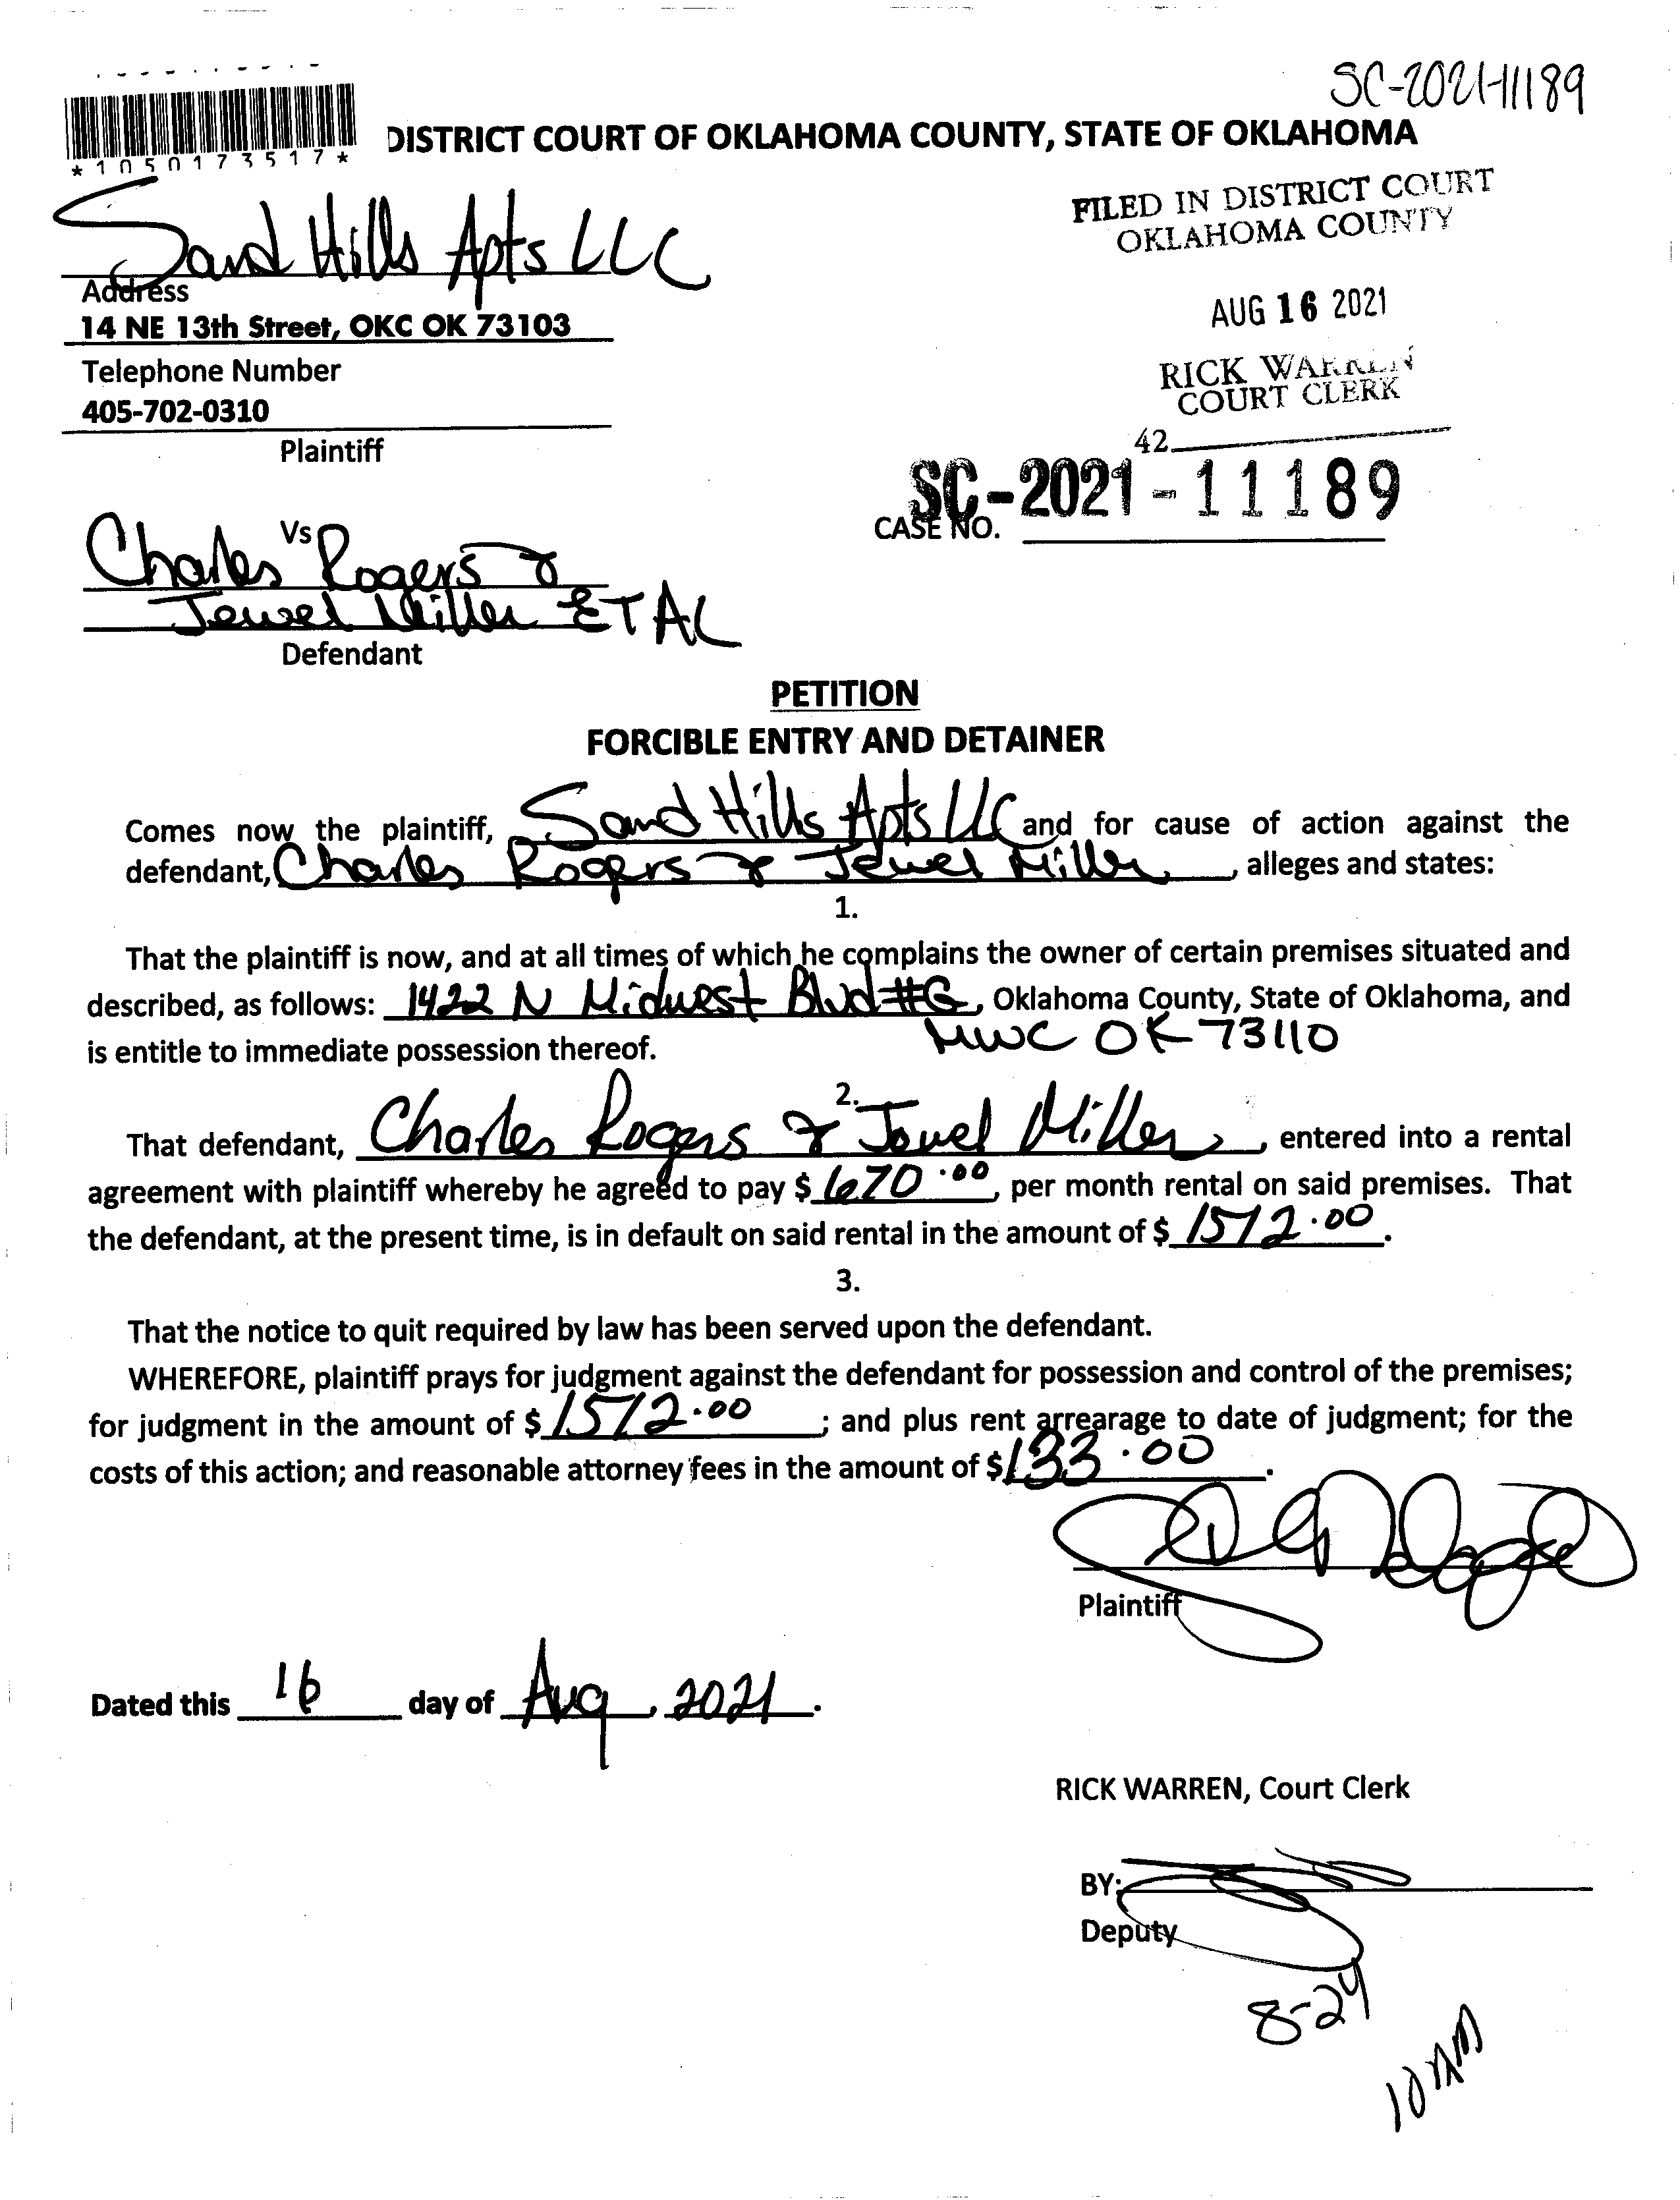 SC-2021-11189
*1050173517*
DISTRICT COURT OF OKLAHOMA COUNTY, STATE OF OKLAHOMA
FILED IN DISTRICT COURT
OKLAHOMA COUNTY
Sand Hills Apts LLC
Address
14 NE 13th Street, OKC OK 73103
AUG 16 2021
Telephone Number
405-702-0310
RICK WARREN
COURT CLERK
Plaintiff
42
SC-2021-11189
CASE NO.
Vs
Charles Rogers &
Jewel Miller ET AL
Defendant
PETITION
FORCIBLE ENTRY AND DETAINER
Comes now the plaintiff, Sand Hills Apts LLC and for cause of action against the
defendant, Charles Rogers & Jewel Miller, alleges and states:
1.
That the plaintiff is now, and at all times of which he complains the owner of certain premises situated and
described, as follows: 1422 N Midwest Blvd #G, Oklahoma County, State of Oklahoma, and
MWC OK 73110
is entitle to immediate possession thereof.
2.
That defendant, Charles Rogers & Jewel Miller, entered into a rental
agreement with plaintiff whereby he agreed to pay $ 670.00, per month rental on said premises. That
the defendant, at the present time, is in default on said rental in the amount of $ 1512.00.
3.
That the notice to quit required by law has been served upon the defendant.
WHEREFORE, plaintiff prays for judgment against the defendant for possession and control of the premises;
for judgment in the amount of $ 1512.00; and plus rent arrearage to date of judgment; for the
costs of this action; and reasonable attorney fees in the amount of $133.00.
Plaintiff
Dated this 16 day of Aug, 2021.
RICK WARREN, Court Clerk
BY:
Deputy
8-24
10 AM